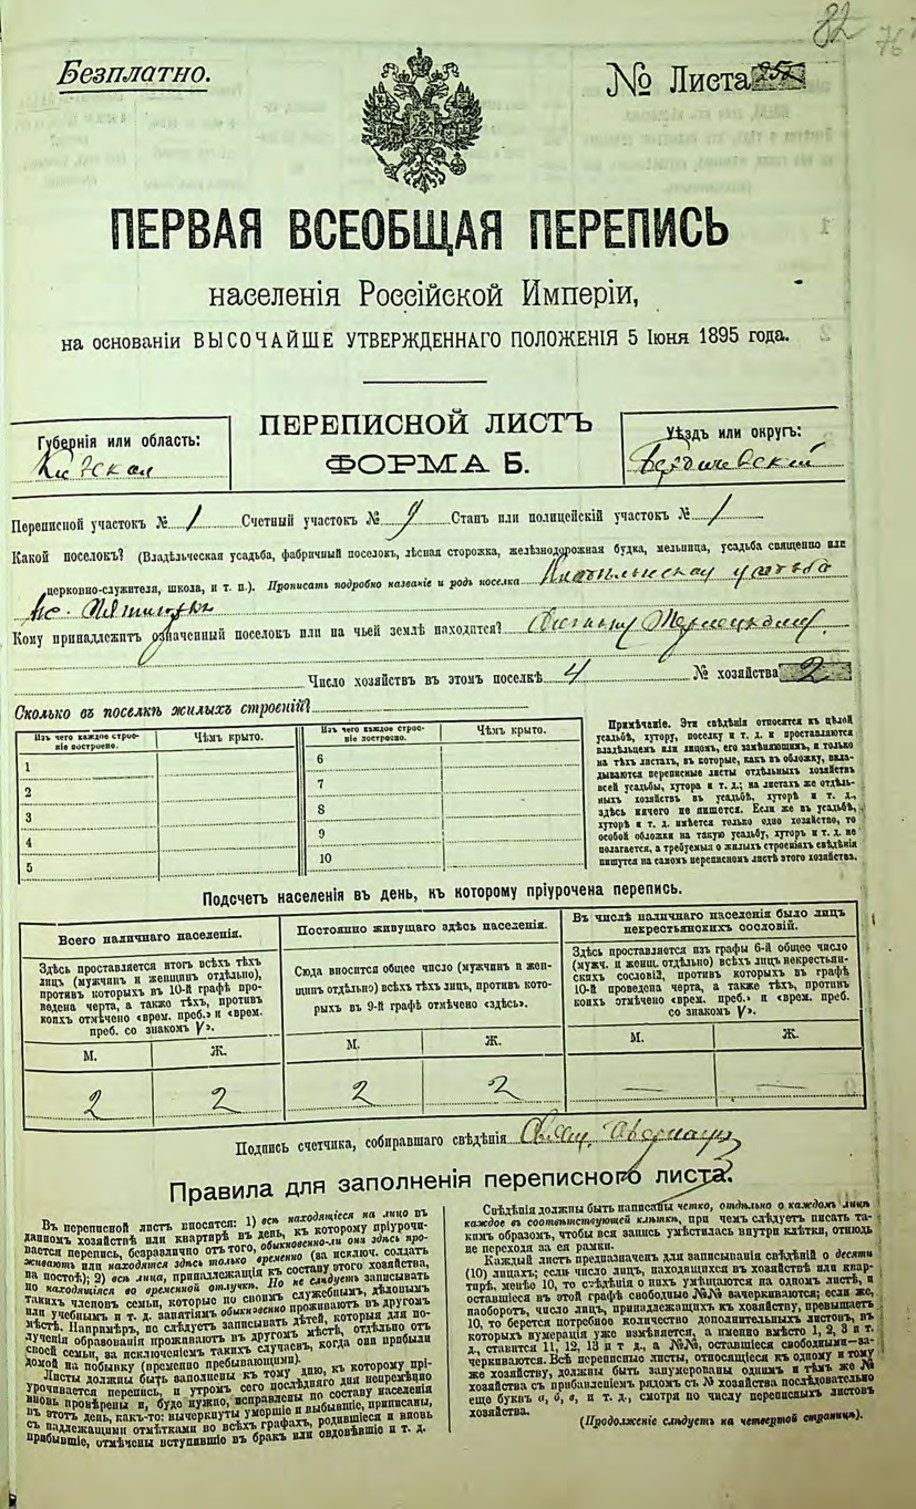 82
76
Безплатно.
№ Листа 252
ПЕРВАЯ ВСЕОБЩАЯ ПЕРЕПИСЬ
населенія Россійской Имперіи,
на основаніи ВЫСОЧАЙШЕ УТВЕРЖДЕННАГО ПОЛОЖЕНІЯ 5 Іюня 1895 года.
ПЕРЕПИСНОЙ ЛИСТЪ
ФОРМА Б.
Губернія или область:
Кіевская
Уѣздъ или округъ:
Бердичевскій
Переписной участокъ № 1 Счетный участокъ № 9 Станъ или полицейскій участокъ № 1
Какой поселокъ? (Владѣльческая усадьба, фабричный поселокъ, лѣсная сторожка, желѣзнодорожная будка, мельница, усадьба священно или
церковно-служителя, школа, и т. п.). Прописать подробно названіе и родъ поселка усадьба
м. Пятигоры
Кому принадлежитъ означенный поселокъ или на чьей землѣ находится?
Число хозяйствъ въ этомъ поселкѣ 4 № хозяйства 2
Сколько въ поселкѣ жилыхъ строеній?
Изъ чего каждое строеніе построено. Чѣмъ крыто. Изъ чего каждое строеніе построено. Чѣмъ крыто.
1 6
2 7
3 8
4 9
5 10
Примѣчаніе. Эти свѣдѣнія относятся къ цѣлой
усадьбѣ, хутору, поселку и т. д. и проставляются
владѣльцемъ или лицомъ, его замѣняющимъ, и только
на тѣхъ листахъ, въ которые, какъ въ обложку, вкла-
дываются переписные листы отдѣльныхъ хозяйствъ
всей усадьбы, хутора и т. д.; на листахъ же отдѣль-
ныхъ хозяйствъ въ усадьбѣ, хуторѣ и т. д.,
здѣсь ничего не пишется. Если же въ усадьбѣ,
хуторѣ и т. д. имѣется только одно хозяйство, то
особой обложки на такую усадьбу, хуторъ и т. д. не
полагается, а требуемыя о жилыхъ строеніяхъ свѣдѣнія
пишутся на самомъ переписномъ листѣ этого хозяйства.
Подсчетъ населенія въ день, къ которому пріурочена перепись.
Всего наличнаго населенія.
Здѣсь проставляется итогъ всѣхъ тѣхъ
лицъ (мужчинъ и женщинъ отдѣльно),
противъ которыхъ въ 10-й графѣ про-
ведена черта, а также тѣхъ, противъ
коихъ отмѣчено «врем. преб.» и «врем.
преб. со знакомъ V».
М. Ж.
2 2
Постоянно живущаго здѣсь населенія.
Сюда вносится общее число (мужчинъ и жен-
щинъ отдѣльно) всѣхъ тѣхъ лицъ, противъ кото-
рыхъ въ 9-й графѣ отмѣчено «здѣсь».
М. Ж.
2 2
Въ числѣ наличнаго населенія было лицъ
некрестьянскихъ сословій.
Здѣсь проставляется изъ графы 6-й общее число
(мужч. и женщ. отдѣльно) всѣхъ лицъ некрестьян-
скихъ сословій, противъ которыхъ въ графѣ
10-й проведена черта, а также тѣхъ, противъ
коихъ отмѣчено «врем. преб.» и «врем. преб.
со знакомъ V».
М. Ж.
— —
Подпись счетчика, собиравшаго свѣдѣнія
Правила для заполненія переписного листа.
Въ переписной листъ вносятся: 1) всѣ находящіеся на лицо въ
данномъ хозяйствѣ или квартирѣ въ день, къ которому пріурочи-
вается перепись, безразлично отъ того, обыкновенно-ли они здѣсь про-
живаютъ или находятся здѣсь только временно (за исключ. солдатъ
на постоѣ); 2) всѣ лица, принадлежащія къ составу этого хозяйства,
но находящіяся во временной отлучкѣ. Но не слѣдуетъ записывать
такихъ членовъ семьи, которые по своимъ служебнымъ, дѣловымъ
или учебнымъ и т. д. занятіямъ обыкновенно проживаютъ въ другомъ
мѣстѣ. Напримѣръ, не слѣдуетъ записывать дѣтей, которыя для по-
лученія образованія проживаютъ въ другомъ мѣстѣ, отдѣльно отъ
своей семьи, за исключеніемъ такихъ случаевъ, когда они прибыли
домой на побывку (временно пребывающими).
Листы должны быть заполнены къ тому дню, къ которому прі-
урочивается перепись, и утромъ сего послѣдняго дня непремѣнно
вновь провѣрены и, буде нужно, исправлены по составу населенія
въ этотъ день, какъ-то: вычеркнуты умершіе и выбывшіе, приписаны,
съ надлежащими отмѣтками во всѣхъ графахъ, родившіеся и вновь
прибывшіе, отмѣчены вступившіе въ бракъ или овдовѣвшіе и т. д.
Свѣдѣнія должны быть написаны четко, отдѣльно о каждомъ лицѣ
каждое въ соотвѣтствующей клѣткѣ, при чемъ слѣдуетъ писать та-
кимъ образомъ, чтобы вся запись умѣстилась внутри клѣтки, отнюдь
не переходя за ея рамки.
Каждый листъ предназначенъ для записыванія свѣдѣній о десяти
(10) лицахъ; если число лицъ, находящихся въ хозяйствѣ или квар-
тирѣ, менѣе 10, то свѣдѣнія о нихъ умѣщаются на одномъ листѣ, и
оставшіеся въ этой графѣ свободные №№ вачеркиваются; если же,
наоборотъ, число лицъ, принадлежащихъ къ хозяйству, превышаетъ
10, то берется потребное количество дополнительныхъ листовъ, въ
которыхъ нумерація уже измѣняется, а именно вмѣсто 1, 2, 3 и т.
д., ставится 11, 12, 13 и т д., а №№, оставшіеся свободными—за-
черкиваются. Всѣ переписные листы, относящіеся къ одному и тому
же хозяйству, должны быть занумерованы однимъ и тѣмъ же №
хозяйства съ прибавленіемъ рядомъ съ № хозяйства послѣдовательно
еще буквъ а, б, в, и т. д., смотря по числу переписныхъ листовъ
хозяйства.
(Продолженіе слѣдуетъ на четвертой страницѣ).